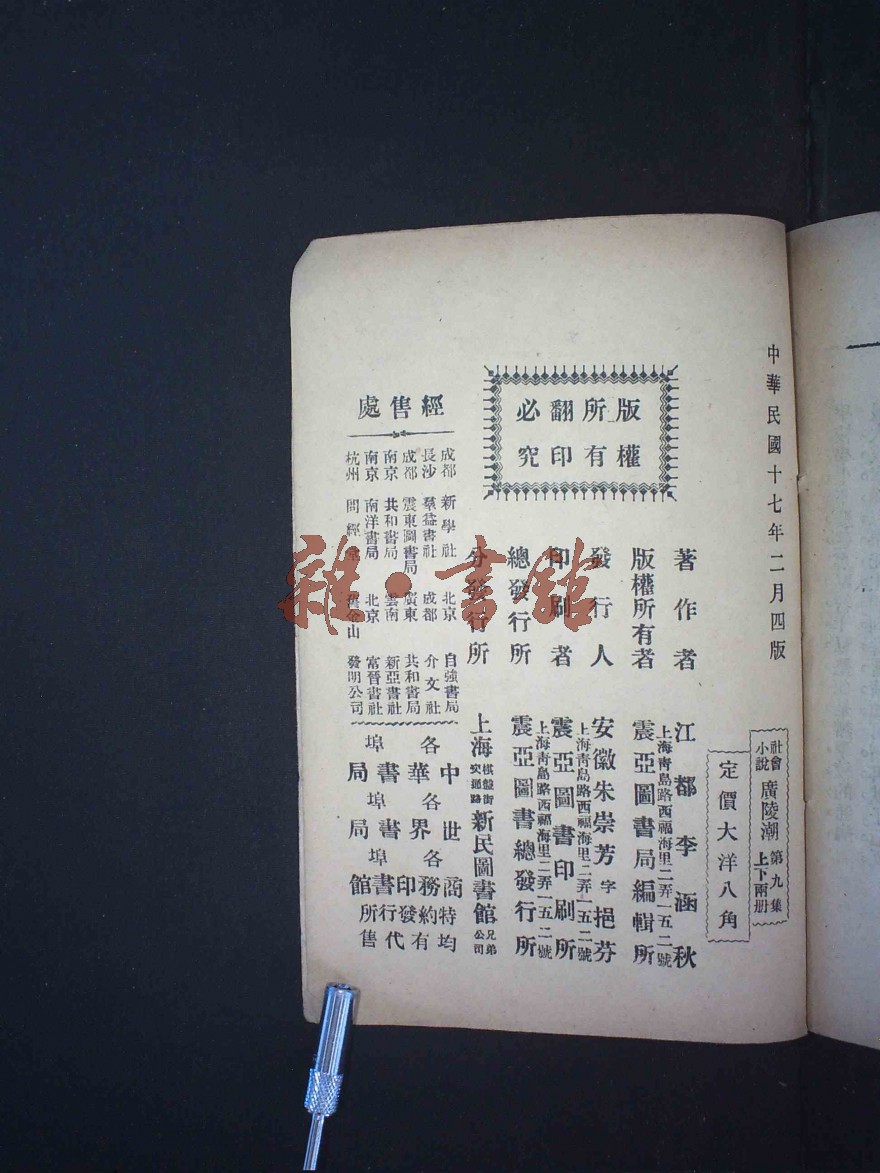 中華民國十七年二月四版
社會小說 廣陵潮 第九集 上下兩册
定價大洋八角
版權所有
翻印必究
著作者 江都李涵秋
版權所有者 震亞圖書局編輯所
上海靑島路西福海里二弄一五二號
發行人 安徽朱崇芳字挹芬
印刷者 震亞圖書印刷所
上海靑島路西福海里二弄一五二號
總發行所 震亞圖書總發行所
上海靑島路西福海里二弄一五二號
分發行所 上海棋盤街交通路新民圖書館兄弟公司
經售處
成都 新學社 北京 自強書局
長沙 羣益書社 成都 介文社
成都 震東圖書局 廣東 共和書局
南京 共和書局 雲南 新亞書社
南京 南洋書局 北京 富晉書社
杭州 問經堂 金山 發明公司
各埠中華書局
各埠世界書局
各埠商務印書館
特約發行所
均有代售
雜·書館